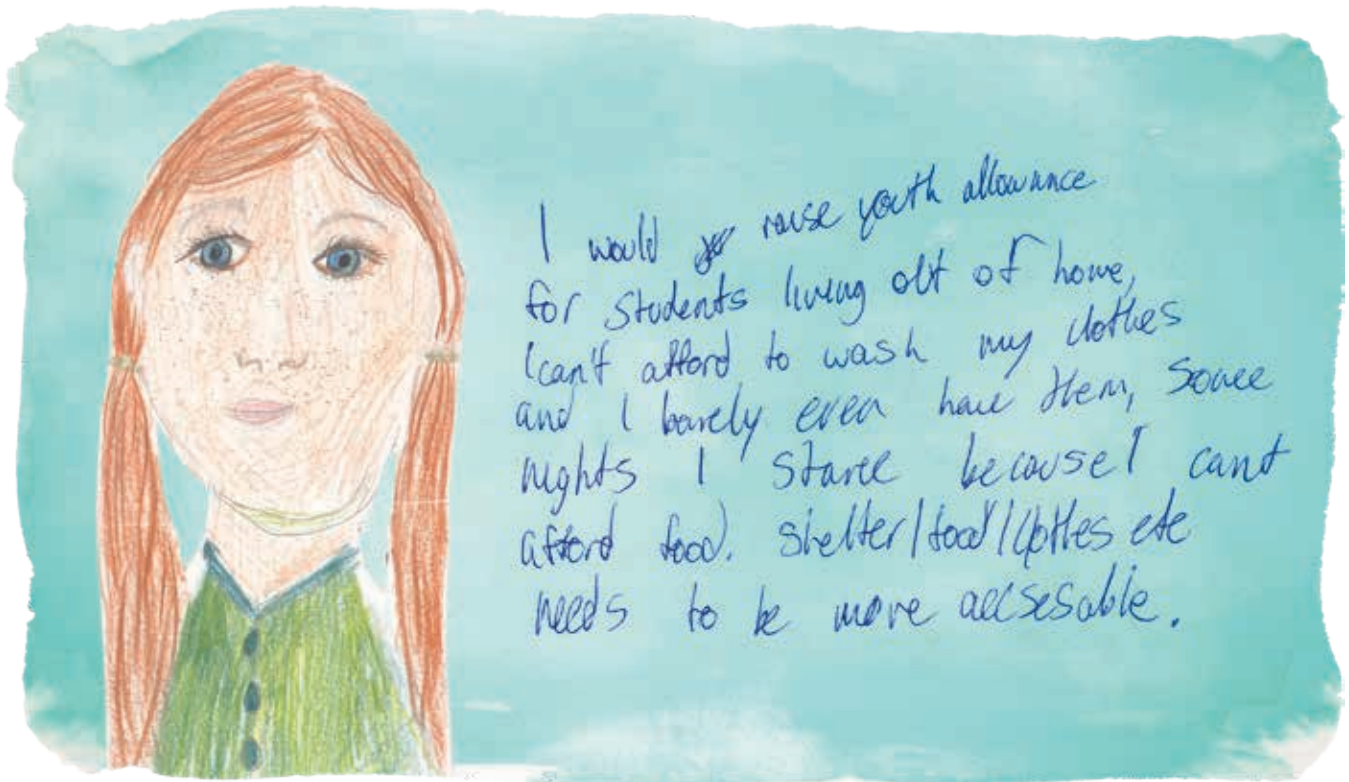 I would raise youth allowance
for students living out of home,
I can't afford to wash my clothes
and I barely even have them, some
nights I starve because I cant
afford food. shelter/food/clothes etc
needs to be more accsesable.